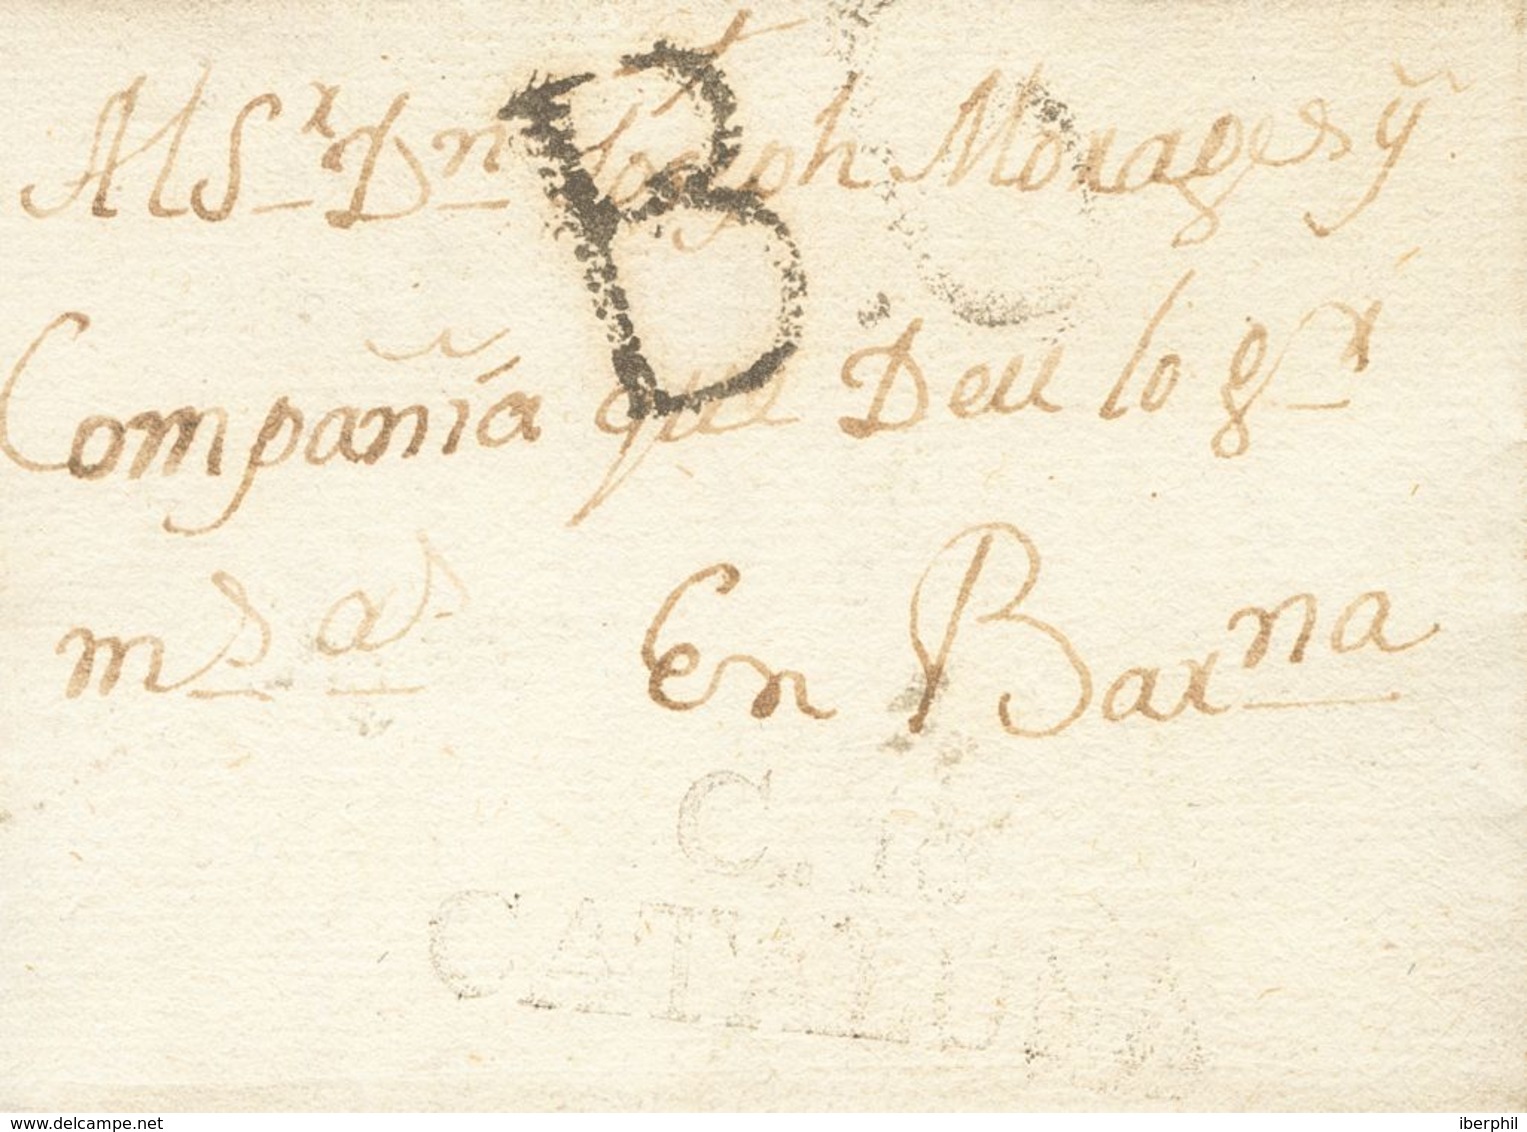 Al Sr Dn Joseph Morages y
Compañia que Deu lo gr
ms as En Barna
B
C. 16
CATALUÑA
www.delcampe.net
iberphil